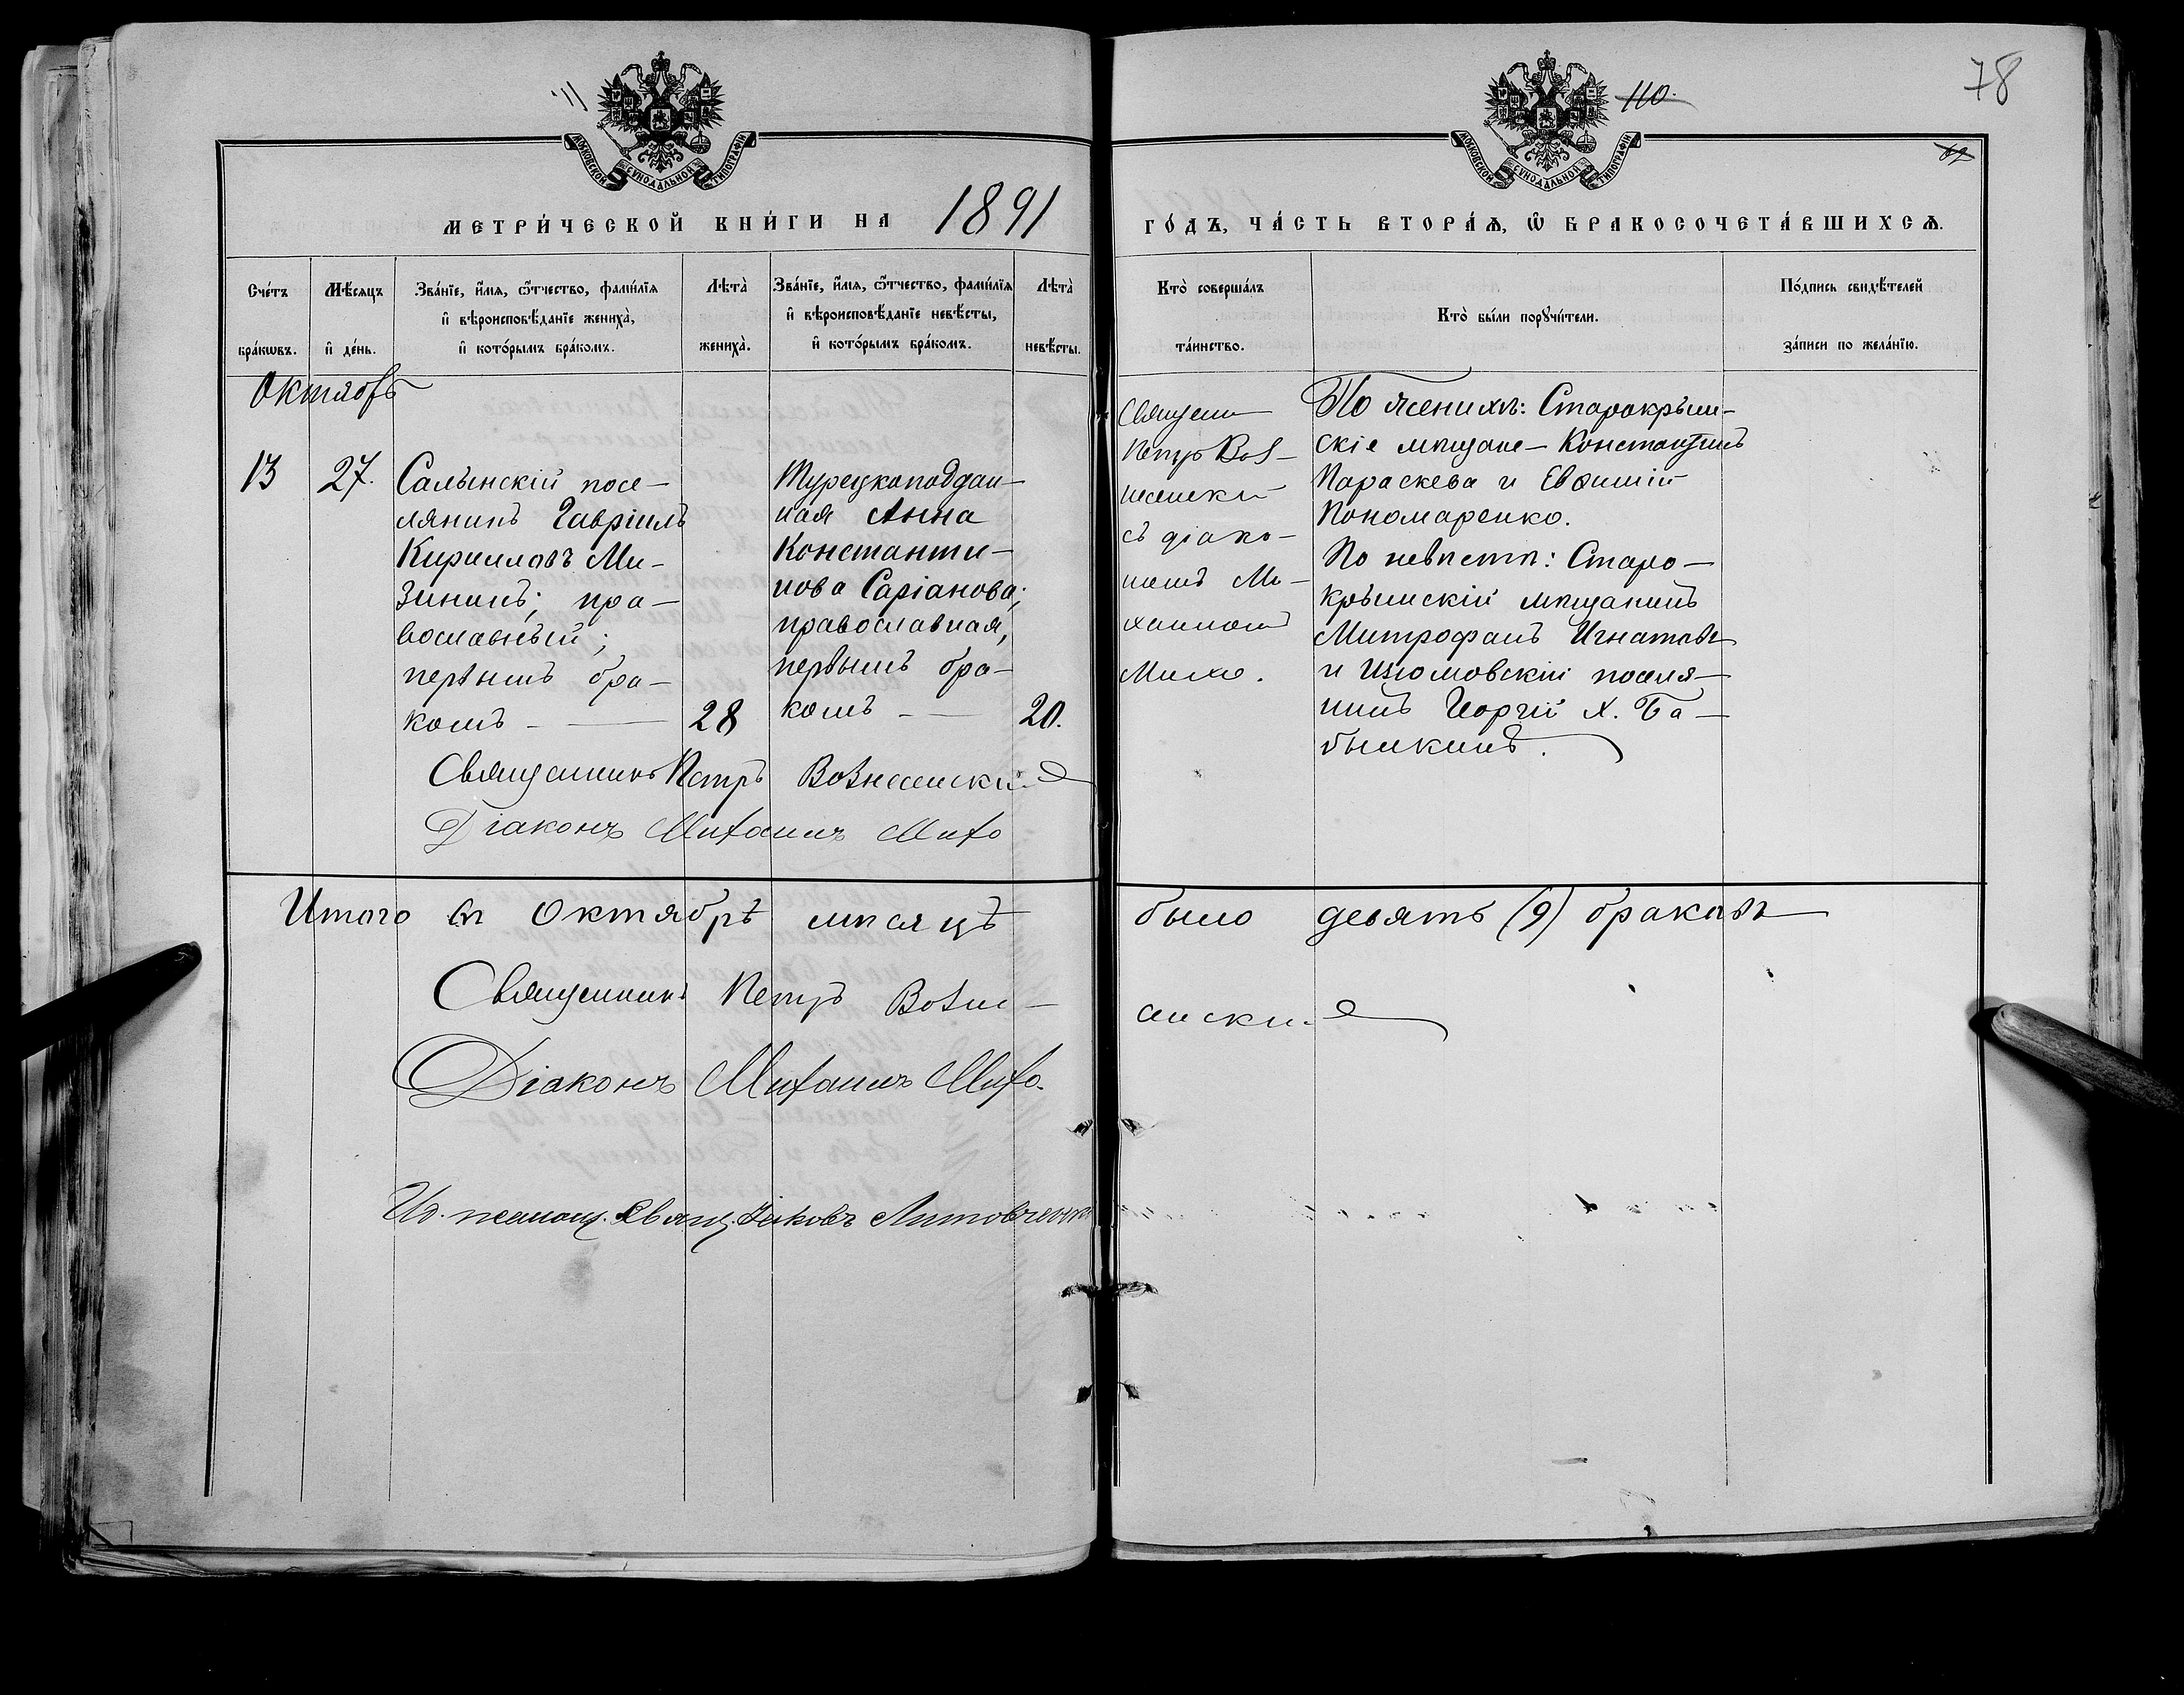 110.
78
МОСКОВСКОЙ СѴНОДАЛЬНОЙ ТИПОГРАФІИ
МОСКОВСКОЙ СѴНОДАЛЬНОЙ ТИПОГРАФІИ
МЕТРИ́ЧЕСКОЙ КНИ́ГИ НА 1891
ГО́ДЪ, ЧА́СТЬ ВТОРА́Ѧ, Ѡ҆ БРАКОСОЧЕТА́ВШИХСѦ.
Сче́тъ бра́кѡвъ.
Мѣ́сяцъ и҆ де́нь.
Зва́нїе, и҆́мѧ, ѻ҆́тчество, фами́лїѧ
и҆ вѣроисповѣ́данїе жениха̀,
и҆ кото́рымъ бра́комъ.
Лѣта̀ жениха̀.
Зва́нїе, и҆́мѧ, ѻ҆́тчество, фами́лїѧ
и҆ вѣроисповѣ́данїе невѣ́сты,
и҆ кото́рымъ бра́комъ.
Лѣта̀ невѣ́сты.
Кто̀ соверша́лъ
та́инство.
Кто̀ бы́ли порꙋчи́тели.
По́дпись свидѣ́телей
за́писи по жела́нїю.
Октябрь
13
27.
Салынскій посе-
лянинъ Гавріилъ
Кирилловъ Ми-
зининъ; пра-
вославный;
первымъ бра-
комъ -
28
Турецкоподдан-
ная Анна
Константи-
нова Саріанова;
православная,
первымъ бра-
комъ -
20.
Священ
Петръ Воз-
несенскій
съ діако-
номъ Ми-
хаиломъ
Михо.
По женихѣ: Старокрым-
скіе мѣщане - Константинъ
Параскева и Евѳимій
Пономаренко.
По невѣстѣ: Старо-
крымскій мѣщанинъ
Митрофанъ Игнатовъ
и Изюмовскій поселя-
нинъ Георгій Х. Ба-
бышкинъ.
Священникъ Петръ Вознесенскій
Діаконъ Михаилъ Михо
Итого въ Октябрѣ мѣсяцѣ было девять (9) браковъ
Священникъ Петръ Возне-
сенскій
Діаконъ Михаилъ Михо.
Ид. псаломщ. Свящ. Іаковъ Литовченко